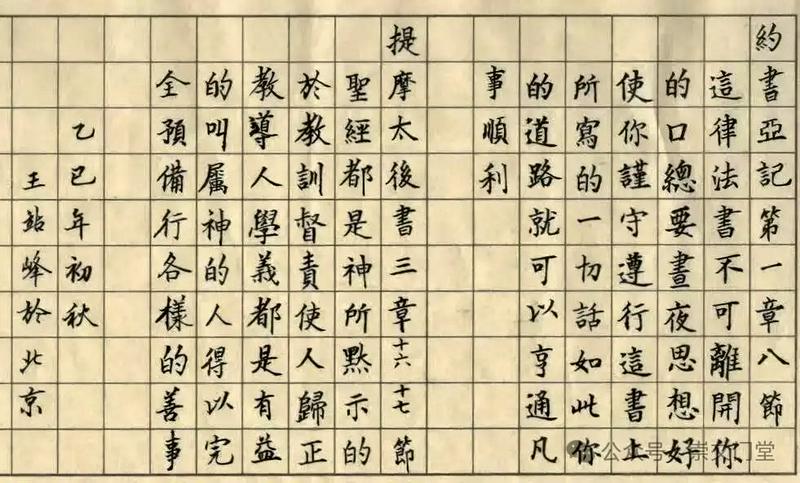 約書亞記第一章八節
這律法書不可離開你
的口總要晝夜思想好
使你謹守遵行這書上
所寫的一切話如此你
的道路就可以亨通凡
事順利
提摩太後書三章十六十七節
聖經都是神所黙示的
於教訓督責使人歸正
教導人學義都是有益
的叫屬神的人得以完
全預備行各樣的善事
乙巳年初秋
王站峰於北京
公众号·崇文门堂